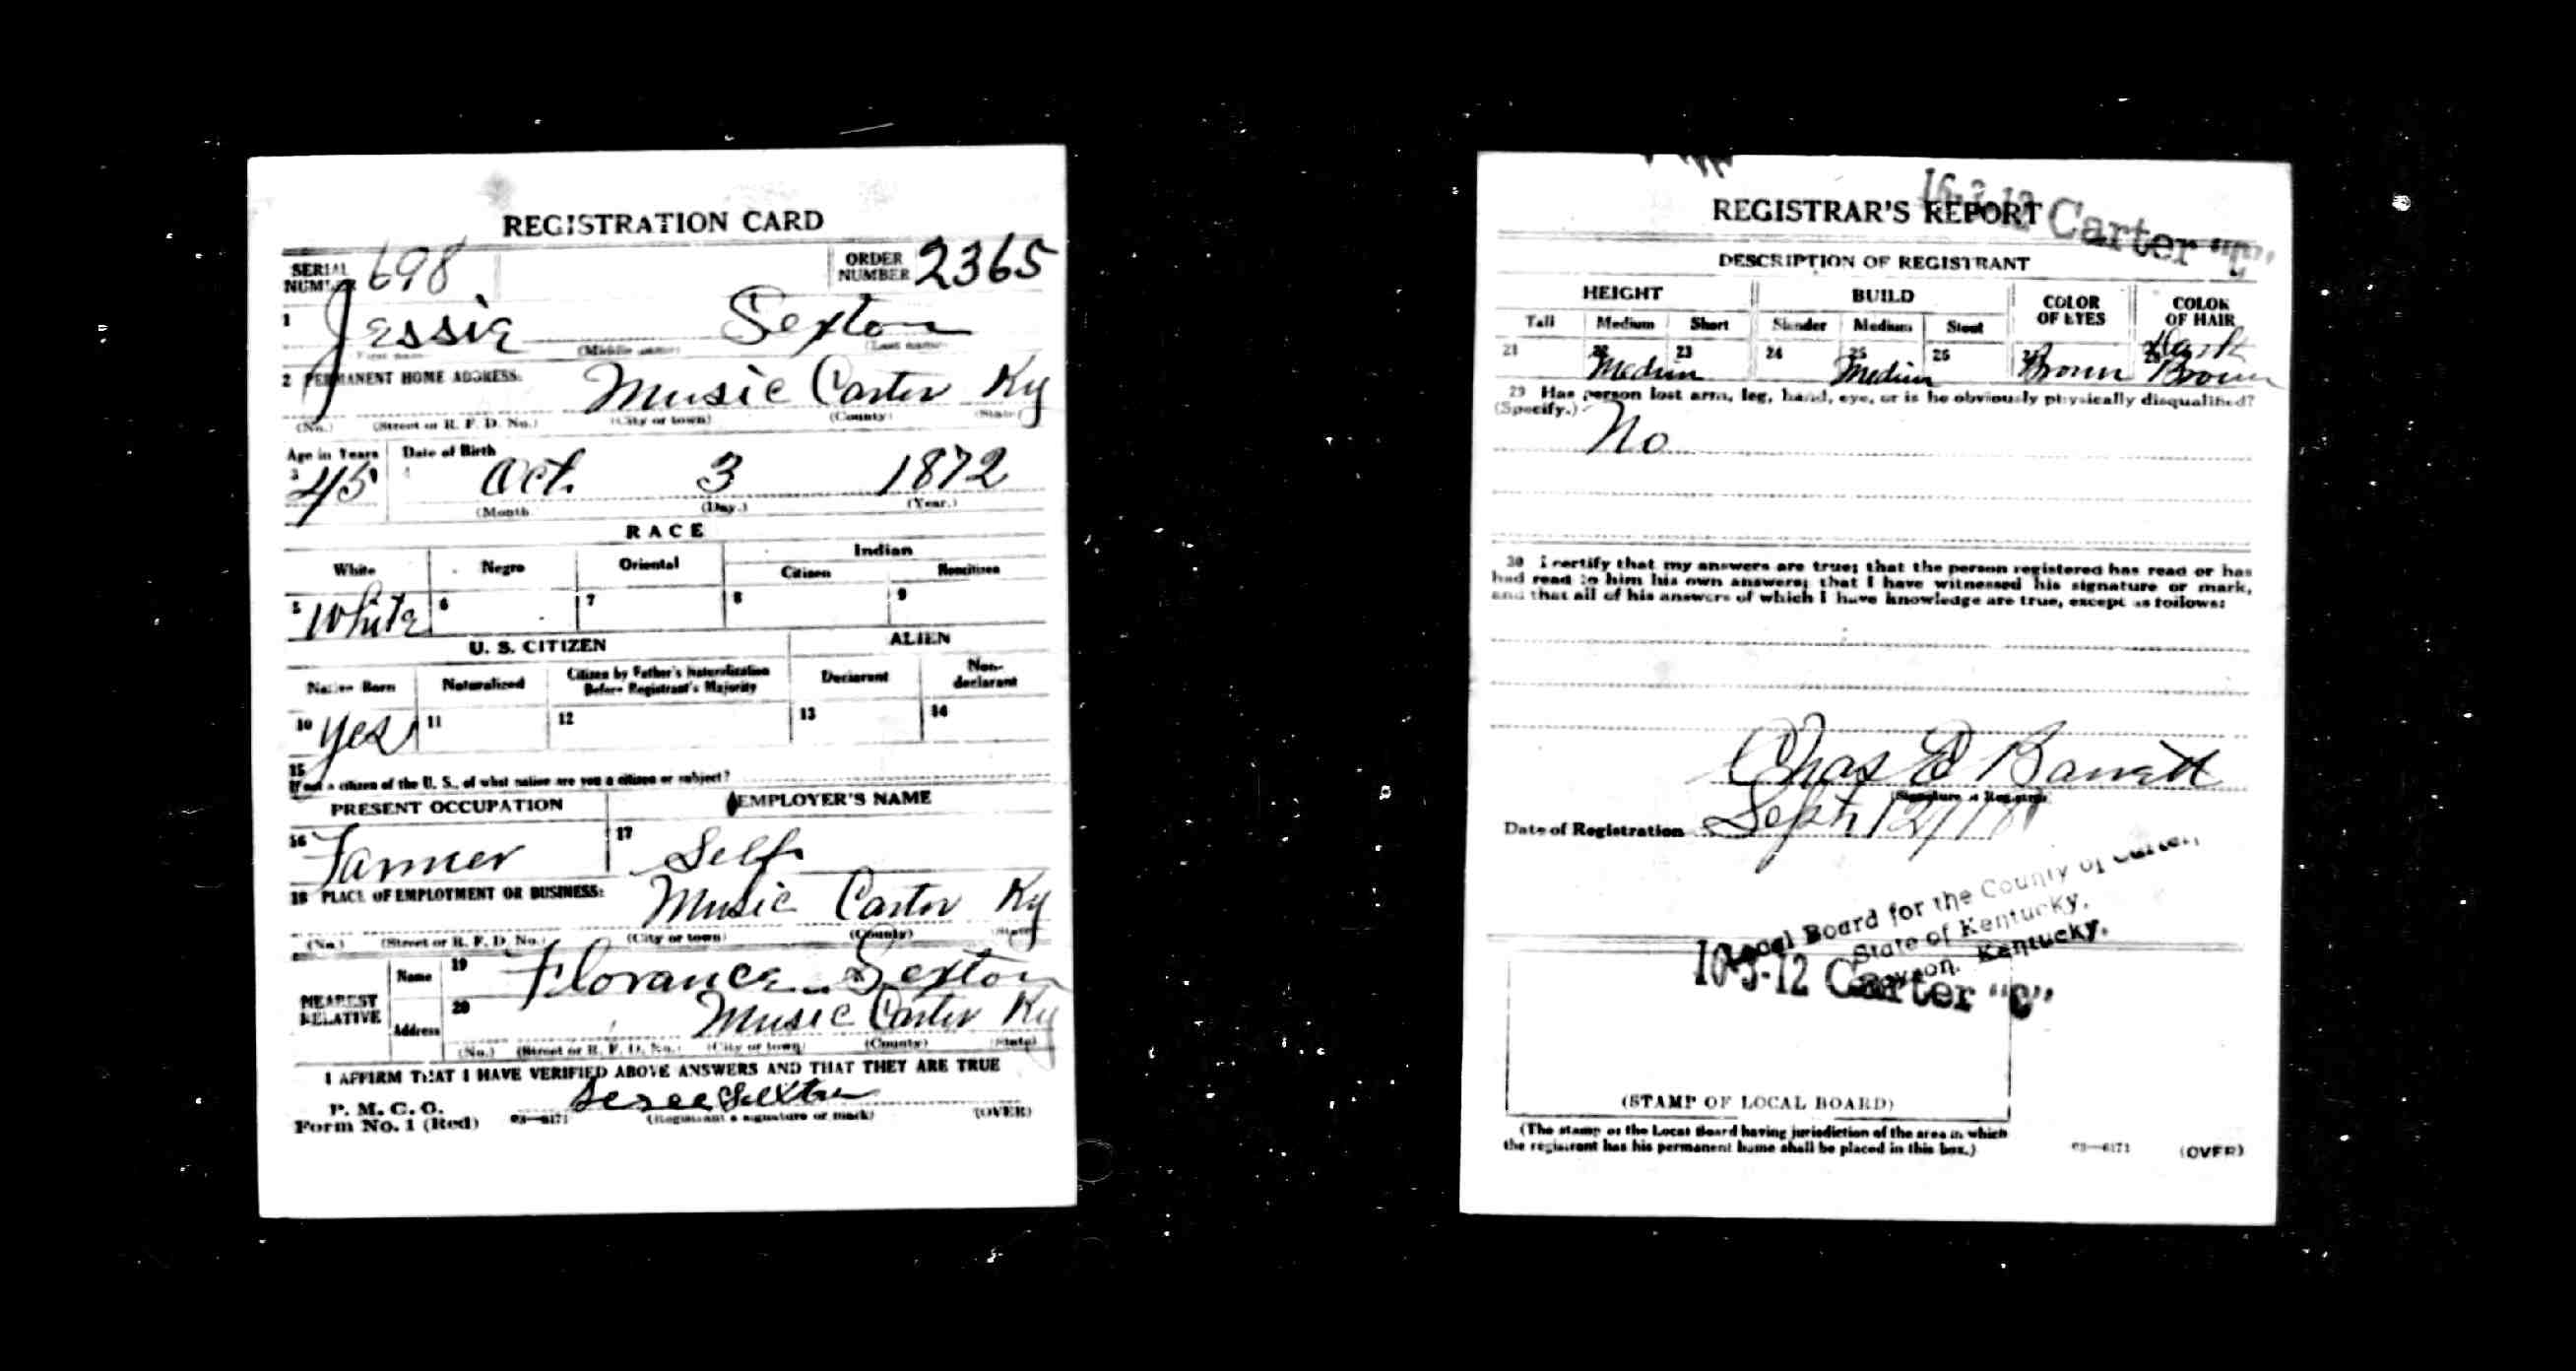 REGISTRATION CARD
SERIAL NUMBER 698 ORDER NUMBER 2365
1 Jessie Sexton
(First name) (Middle name) (Last name)
2 PERMANENT HOME ADDRESS: Music Carter Ky
(No.) (Street or R. F. D. No.) (City or town) (County) (State)
Age in Years Date of Birth
3 45 4 Oct. 3 1872
(Month) (Day.) (Year.)
RACE
White Negro Oriental Indian
Citizen Noncitizen
5 White 6 7 8 9
U. S. CITIZEN ALIEN
Native Born Naturalized Citizen by Father's Naturalization Before Registrant's Majority Declarant Non-declarant
10 Yes 11 12 13 14
15
If not a citizen of the U. S., of what nation are you a citizen or subject?
PRESENT OCCUPATION EMPLOYER'S NAME
16 Farmer 17 Self
18 PLACE OF EMPLOYMENT OR BUSINESS: Music Carter Ky
(No.) (Street or R. F. D. No.) (City or town) (County) (State)
NEAREST RELATIVE Name 19 Florance Sexton
Address 20 Music Carter Ky
(No.) (Street or R. F. D. No.) (City or town) (County) (State)
I AFFIRM THAT I HAVE VERIFIED ABOVE ANSWERS AND THAT THEY ARE TRUE
P. M. G. O.
Form No. 1 (Red) 03—6171 (Registrant's signature or mark) (OVER)
REGISTRAR'S REPORT
Carter "C"
DESCRIPTION OF REGISTRANT
HEIGHT BUILD COLOR OF EYES COLOR OF HAIR
Tall Medium Short Slender Medium Stout
21 22 Medium 23 24 25 Medium 26 27 Brown 28 Dark Brown
29 Has person lost arm, leg, hand, eye, or is he obviously physically disqualified?
(Specify.) No
30 I certify that my answers are true; that the person registered has read or has
had read to him his own answers; that I have witnessed his signature or mark,
and that all of his answers of which I have knowledge are true, except as follows:
Chas Barrett
(Signature of Registrar)
Date of Registration Sept 12/18
Local Board for the County of Carter,
State of Kentucky,
Grayson, Kentucky.
16-3-12 Carter "C"
(STAMP OF LOCAL BOARD)
(The stamp of the Local Board having jurisdiction of the area in which
the registrant has his permanent home shall be placed in this box.)
03—6171 (OVER)